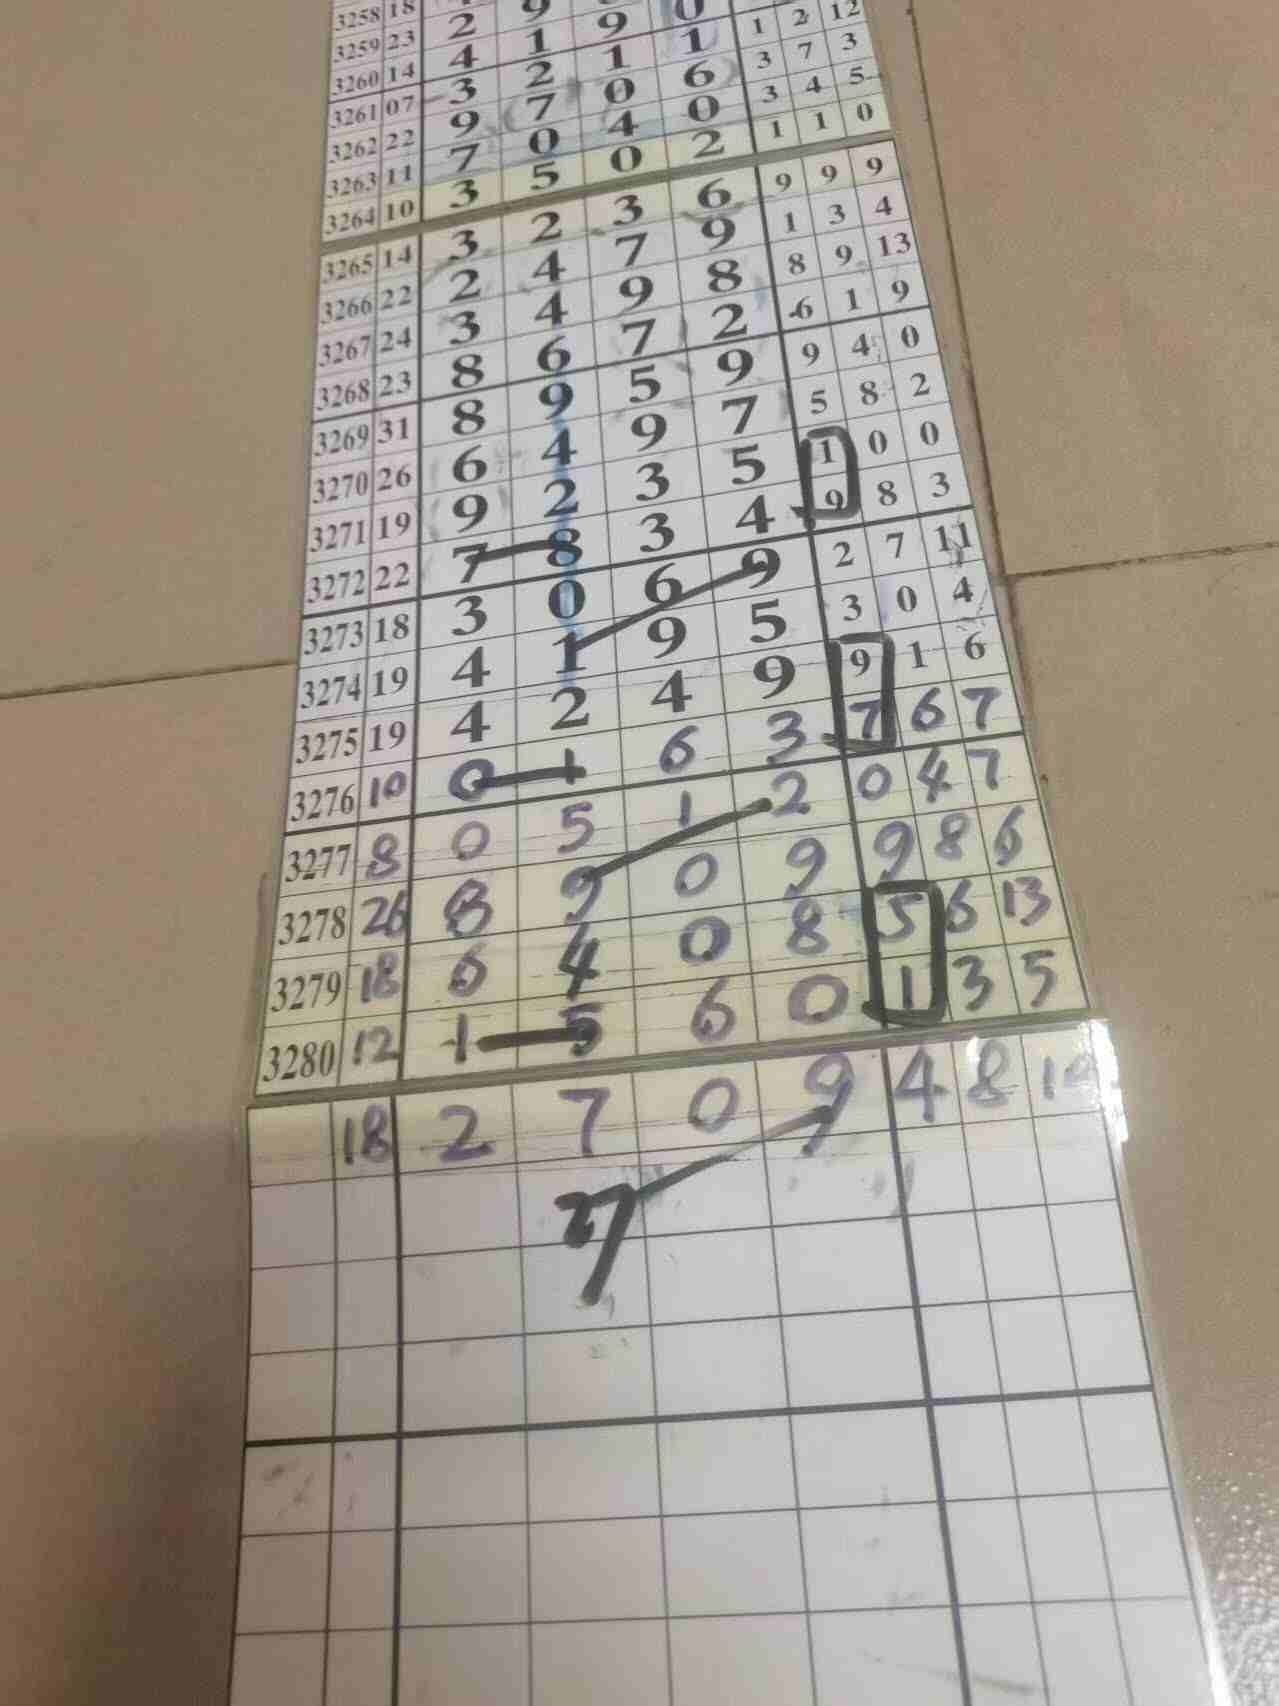 3258 18
3259 23 2 9
3260 14 4 1 9 0
3261 07 3 2 1 1 1 2 12
3262 22 9 7 0 6 3 7 3
3263 11 7 0 4 0 3 4 5
3264 10 3 5 0 2 1 1 0
3265 14 3 2 3 6 9 9 9
3266 22 2 4 7 9 1 3 4
3267 24 3 4 9 8 8 9 13
3268 23 8 6 7 2 6 1 9
3269 31 8 9 5 9 9 4 0
3270 26 6 4 9 7 5 8 2
3271 19 9 2 3 5 1 0 0
3272 22 7 8 3 4 9 8 3
3273 18 3 0 6 9 2 7 11
3274 19 4 1 9 5 3 0 4
3275 19 4 2 4 9 9 1 6
3276 10 0 1 6 3 7 6 7
3277 8 0 5 1 2 0 4 7
3278 26 8 9 0 9 9 8 6
3279 18 6 4 0 8 5 6 13
3280 12 1 5 6 0 1 3 5
18 2 7 0 9 4 8
27